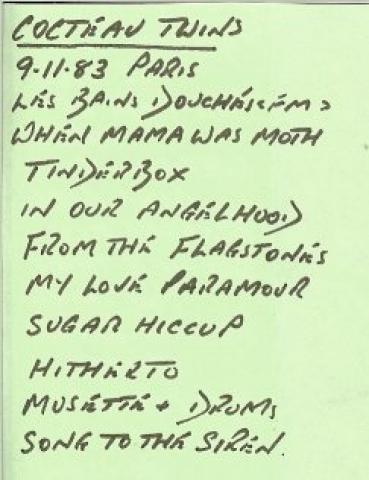 COCTEAU TWINS
9.11.83 PARIS
LES BAINS DOUCHES <FM>
WHEN MAMA WAS MOTH
TINDERBOX
IN OUR ANGELHOOD
FROM THE FLAGSTONES
MY LOVE PARAMOUR
SUGAR HICCUP
HITHERTO
MUSETTE + DRUMS
SONG TO THE SIREN.